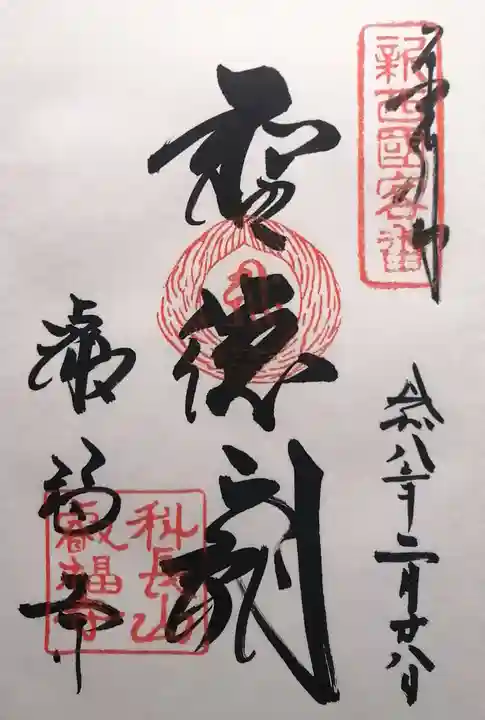 奉拝
新西國客番
令和八年二月廿八日
聖徳廟
叡福寺
科長山
叡福寺